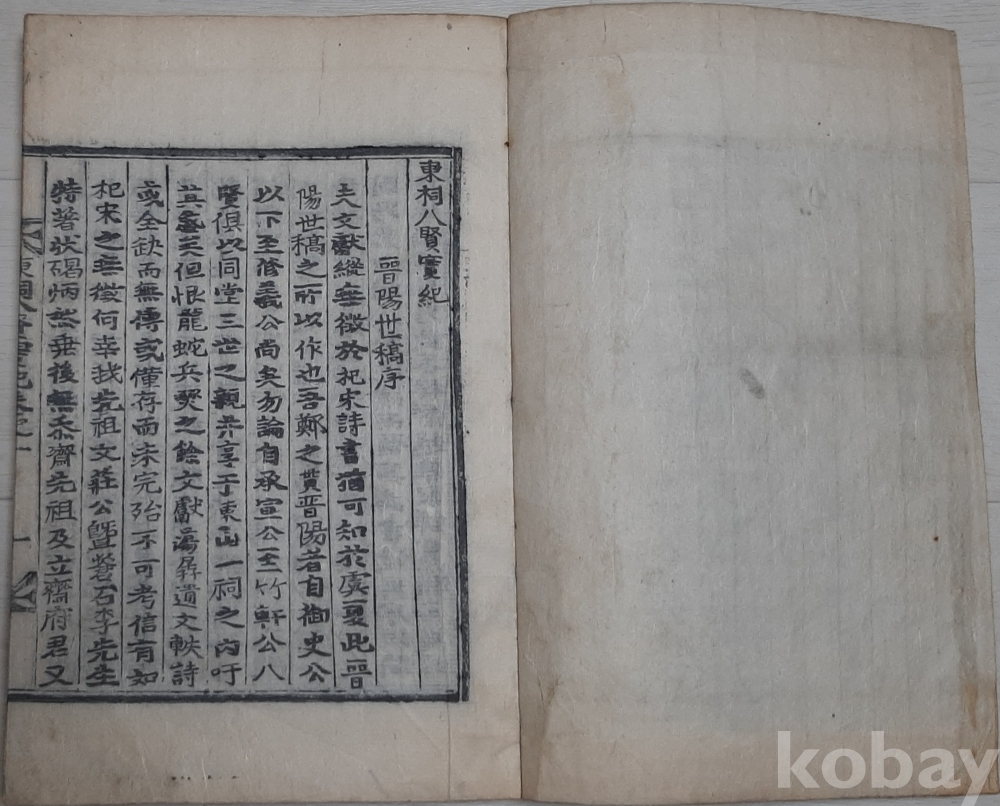 東祠八賢實紀
晋陽世稿序
夫文獻縱無徵於杞宋詩書猶可知於虞夏此晋
陽世稿之所以作也吾鄭之貫晋陽者自御史公
以下至修義公尚矣勿論自承宣公至竹軒公八
賢俱以同堂三世之親并享于東山一祠之内吁
其盛矣但恨龍蛇兵燹之餘文獻蕩殘遺文軼詩
或全缺而無傳或僅存而未完殆不可考信有如
杞宋之無徵何幸我先祖文莊公曁蒼石李先生
特著狀碣炳然垂後無忝齋先祖及立齋府君又
東祠八賢實紀卷之一
一
kobay